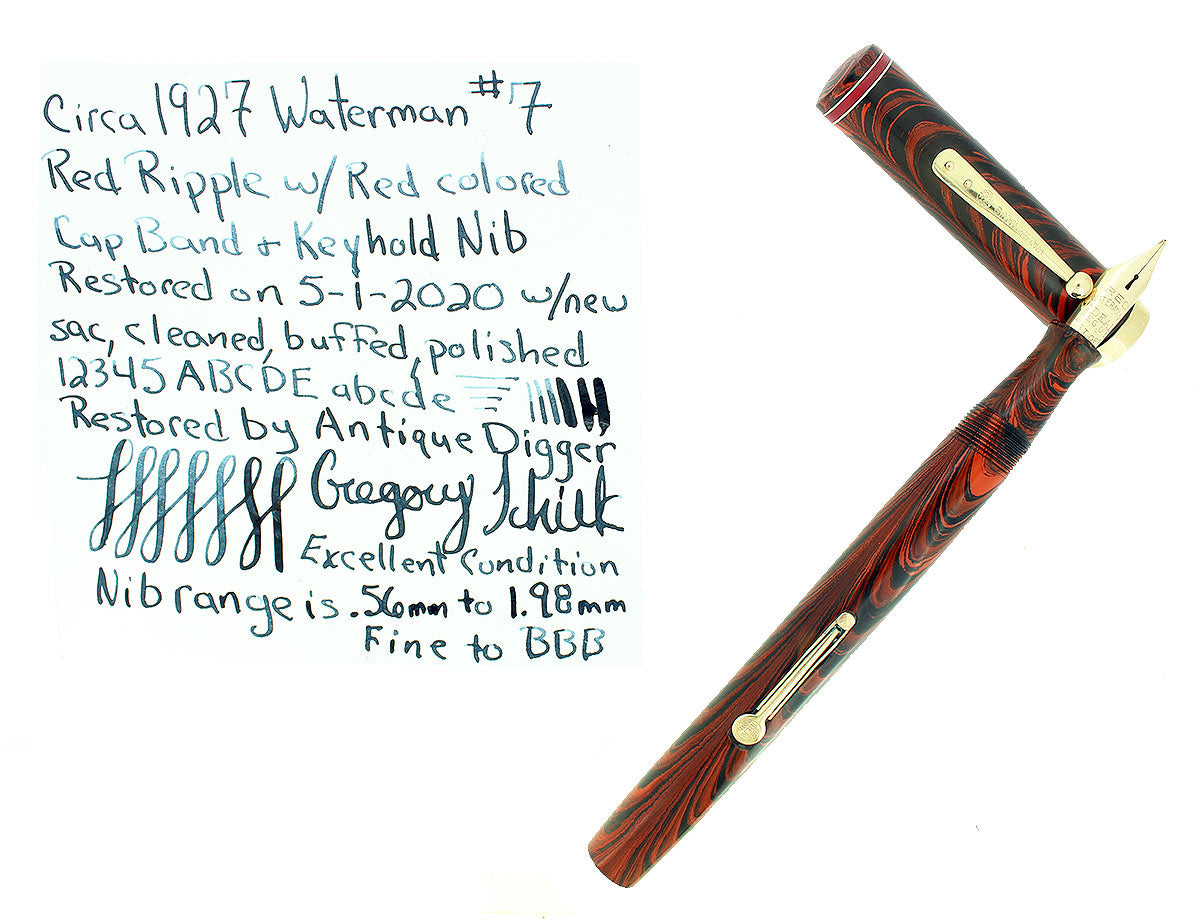 Circa 1927 Waterman #7
Red Ripple w/ Red colored
Cap Band + Keyhold Nib
Restored on 5-1-2020 w/new
sac, cleaned, buffed, polished
12345 ABCDE abcde
Restored by Antique Digger
Gregory
Excellent Condition
Nib range is .56mm to 1.98mm
Fine to BBB
RED